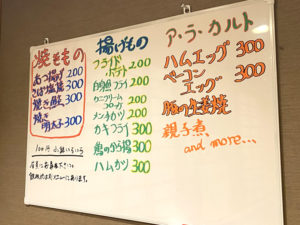 焼きもの
あつ揚げ 200
さば塩焼 300
焼き鮭 300
焼き
明太子 300
揚げもの
フライド
ポテト 200
白身魚フライ 200
カニクリーム
コロッケ 200
メンチカツ 200
カキフライ 300
鶏のから揚 300
ハムカツ 300
ア・ラ・カルト
ハムエッグ 300
ベーコン
エッグ 300
豚の生姜焼
親子煮
and more...,